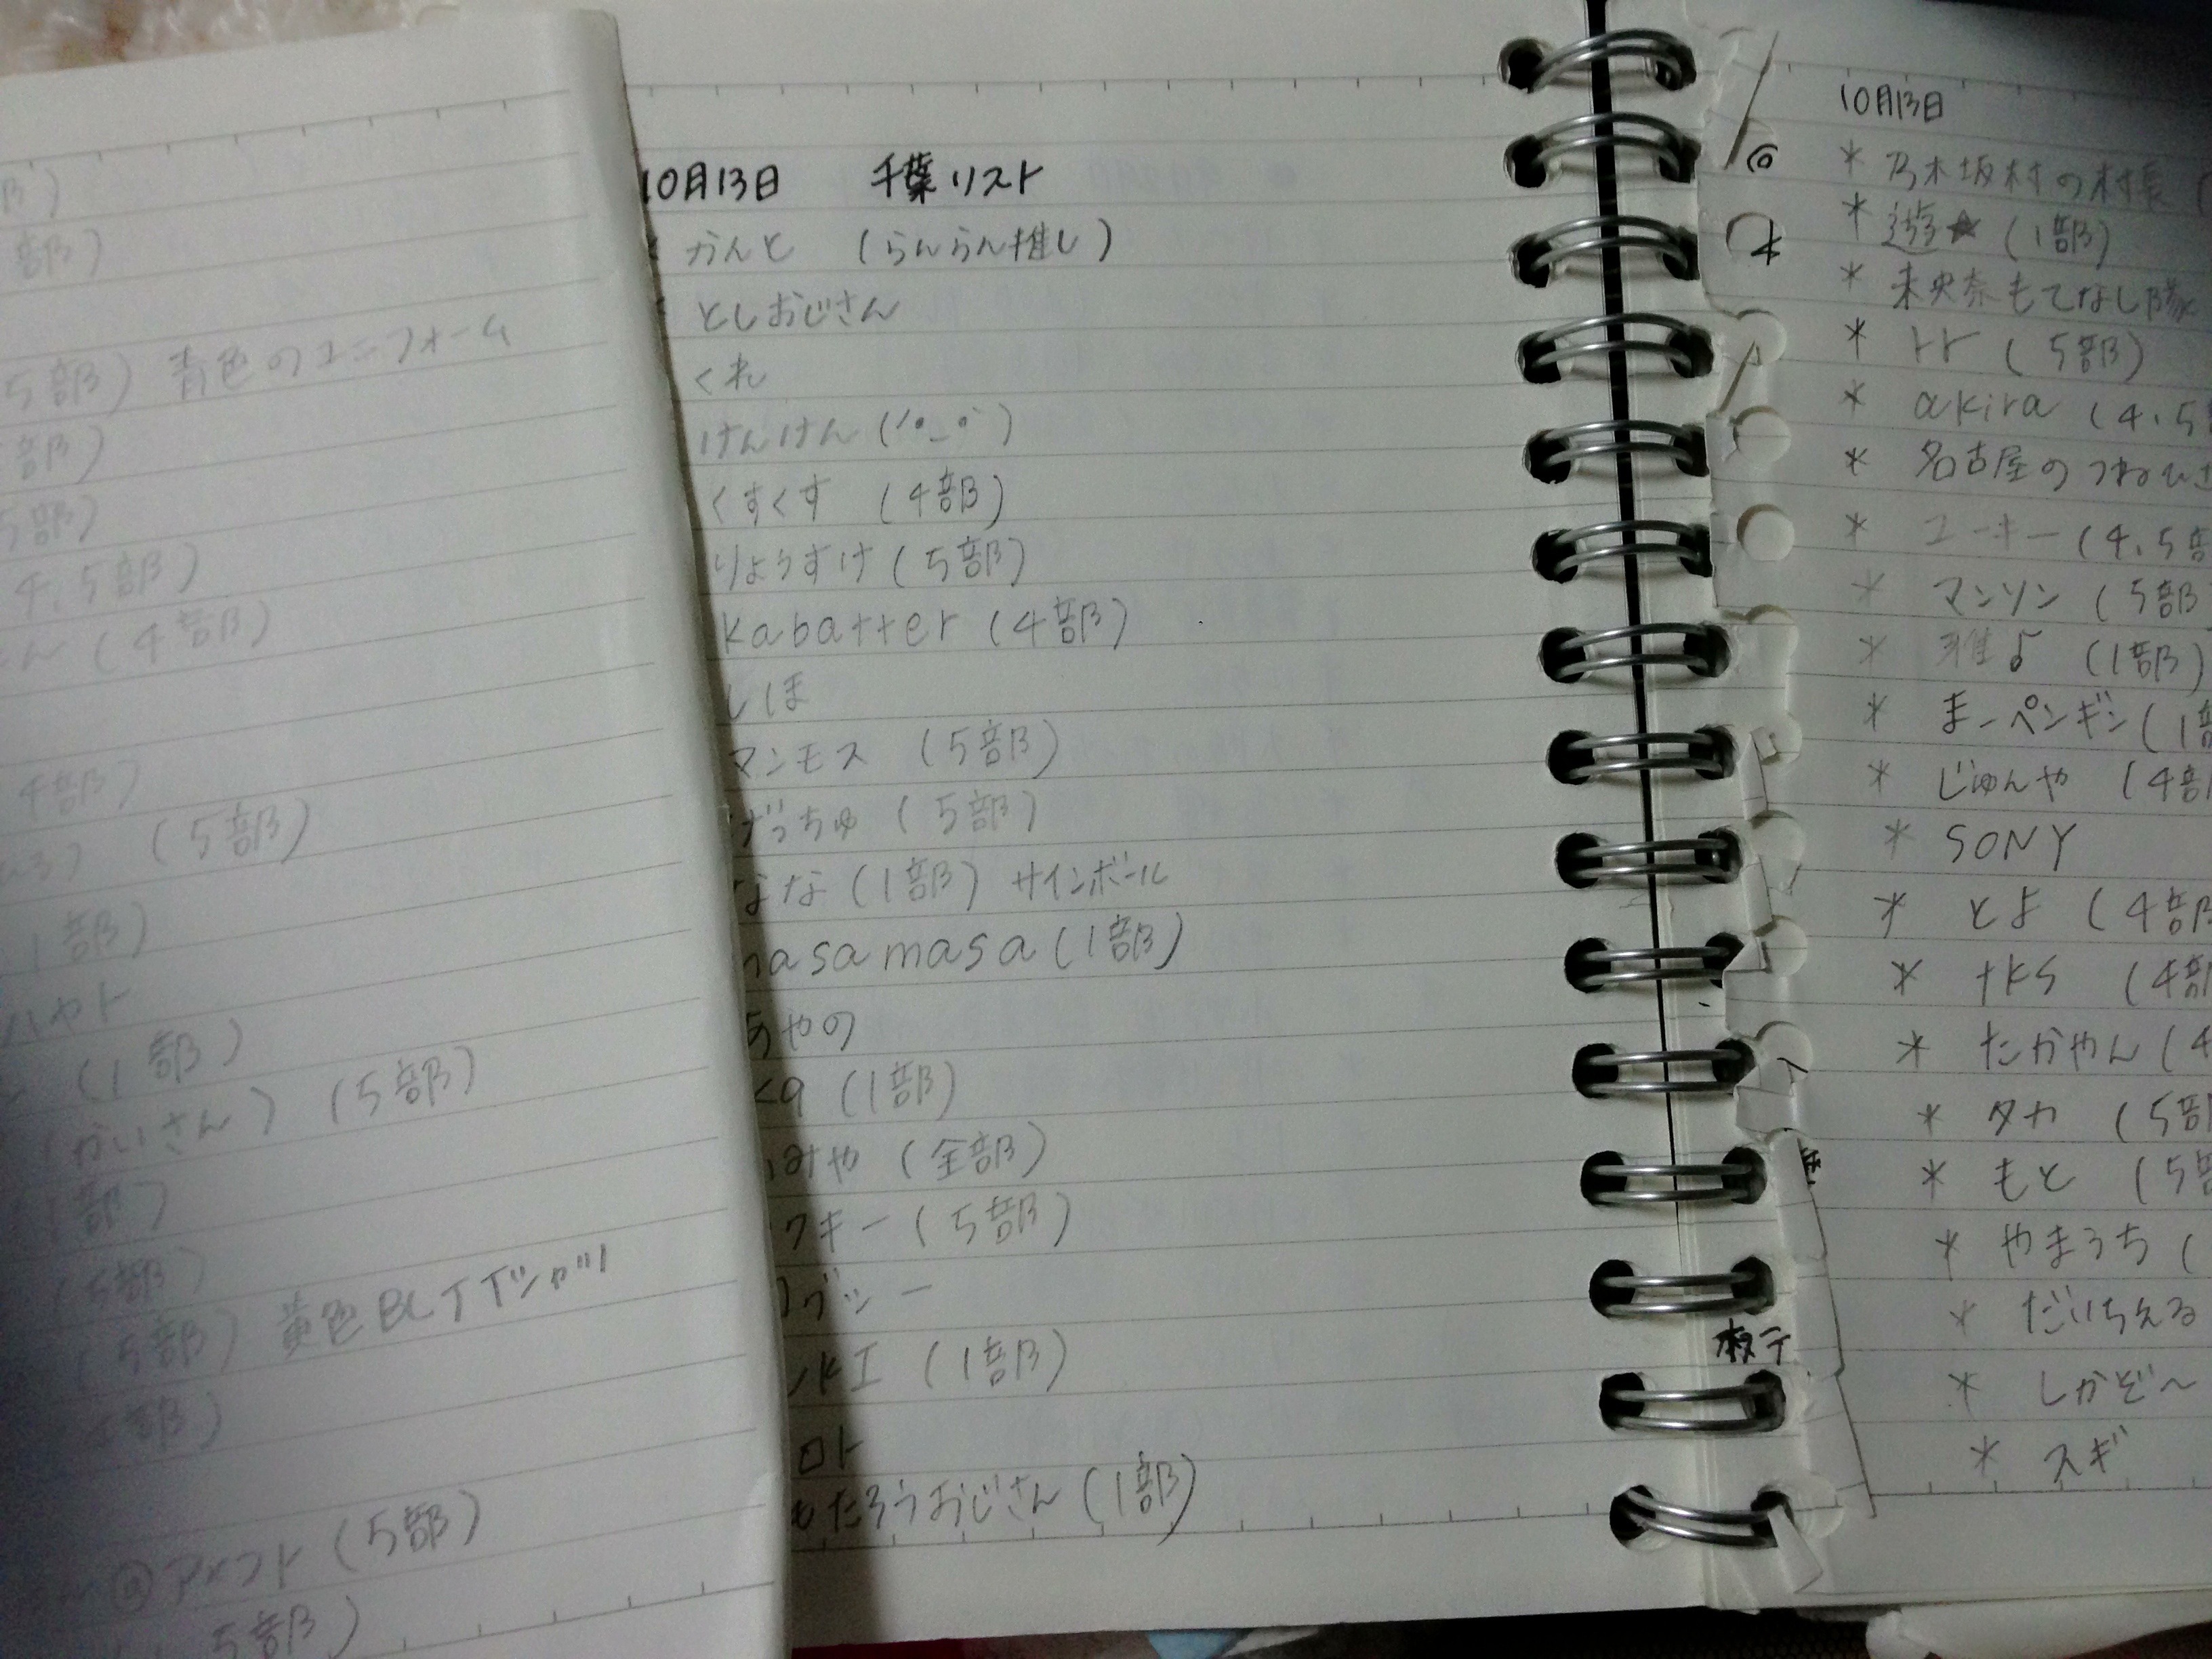 部)
部)
5部) 青色のユニフォーム
部)
5部)
4.5部)
ん (4部)
4部)
(5部)
1部)
ハヤト
(1部)
(かいさん) (5部)
1部)
(5部)
(5部) 黄色BLT Tシャツ
4部)
@アメフト (5部)
5部)
10月13日 千葉リスト
* かんと (らんらん推し)
* としおじさん
くれ
けんけん
くすくす (4部)
りょうすけ (5部)
kabatter (4部)
しほ
マンモス (5部)
げっちゅ (5部)
なな (1部) サインボール
masamasa (1部)
あやの
(1部)
みや (全部)
ワキー (5部)
グッシー
(1部)
ロト
もたろうおじさん (1部)
10月13日
* 乃木坂村の村長 (
* 遊★ (1部)
* 未央奈もてなし隊
* トト (5部)
* akira (4.5
* 名古屋の
* ユーキー (4.5部
* マンソン (5部
* 雅♪ (1部)
* まーペンギン (1部
* じゅんや (4部
* SONY
* とよ (4部
* tks (4部
* たかやん (4
* タカ (5部
* もと (5部
* やまうち (
* だいちぇる
* しかぞ〜
* スギ